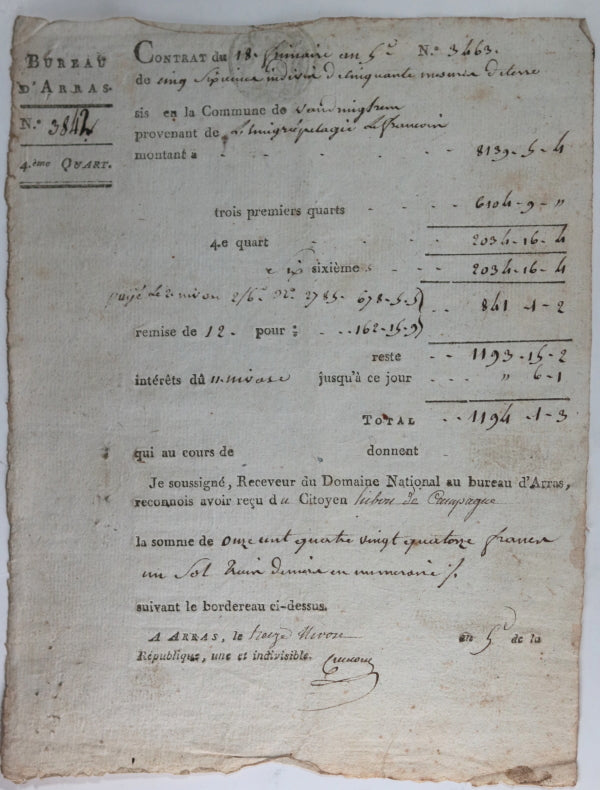 BUREAU
D'ARRAS.
N.o 3842
4.ème QUART.
CONTRAT du 18. frimaire an 5.e N.o 3463.
de cinq sixieme indivis de cinquante mesures de terre
sis en la Commune de
provenant de Lefrancois
montant à - - - - 8139 - 5 - 4
trois premiers quarts - - 6104 - 9 - "
4.e quart - - - 2034 - 16 - 4
sixième - - 2034 - 16 - 4
payé le 2 nivose 2/6.e N.o 2785. 678 - 5 - 5
841 - 1 - 2
remise de 12 - pour - - 162 - 15 - 9
reste - - 1193 - 15 - 2
intérêts dû 11 nivose jusqu'à ce jour - - " 6 - 1
TOTAL - - 1194 - 1 - 3
qui au cours de donnent
Je soussigné, Receveur du Domaine National au bureau d'Arras,
reconnois avoir reçu du Citoyen de Campagne
la somme de onze cent quatre vingt quatorze francs
un Sol trois deniers en numeraire
suivant le bordereau ci-dessus.
A ARRAS, le treize Nivose an 5.e de la
République, une et indivisible.